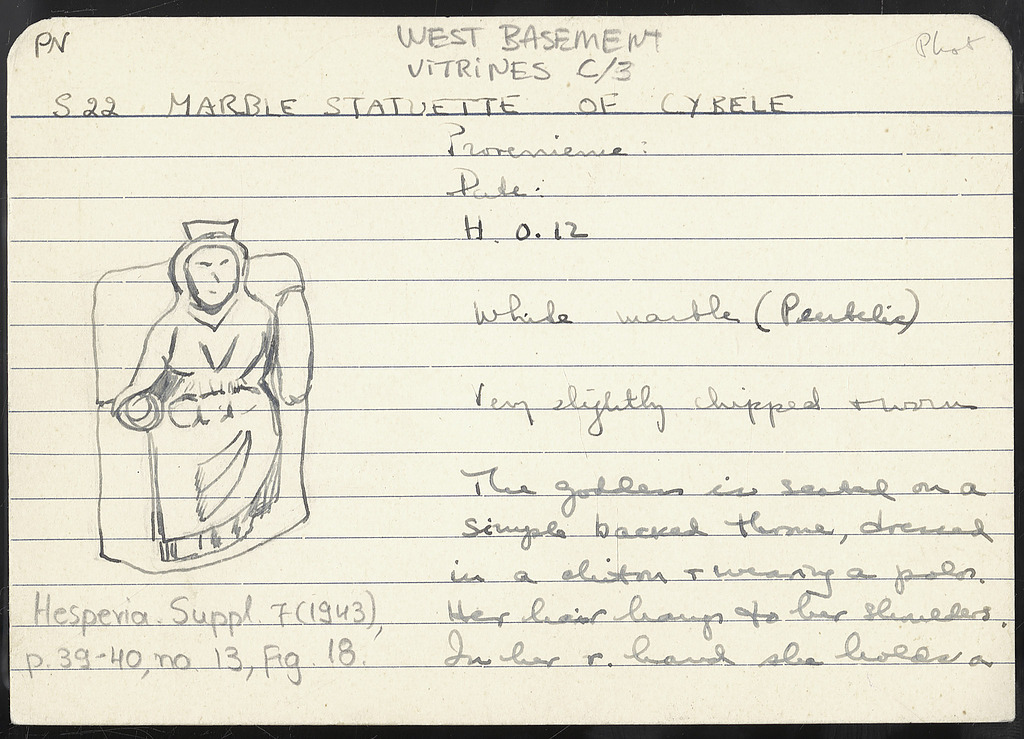 PN
WEST BASEMENT
Phot
VITRINES C/3
S 22 MARBLE STATUETTE OF CYBELE
Provenience:
Date:
H. 0.12
White marble (Pentelic)
Very slightly chipped + worn
The goddess is seated on a
simple backed throne, dressed
in a chiton + wearing a polos.
Her hair hangs to her shoulders.
In her r. hand she holds a
Hesperia. Suppl. 7 (1943),
p. 39-40, no 13, Fig. 18.